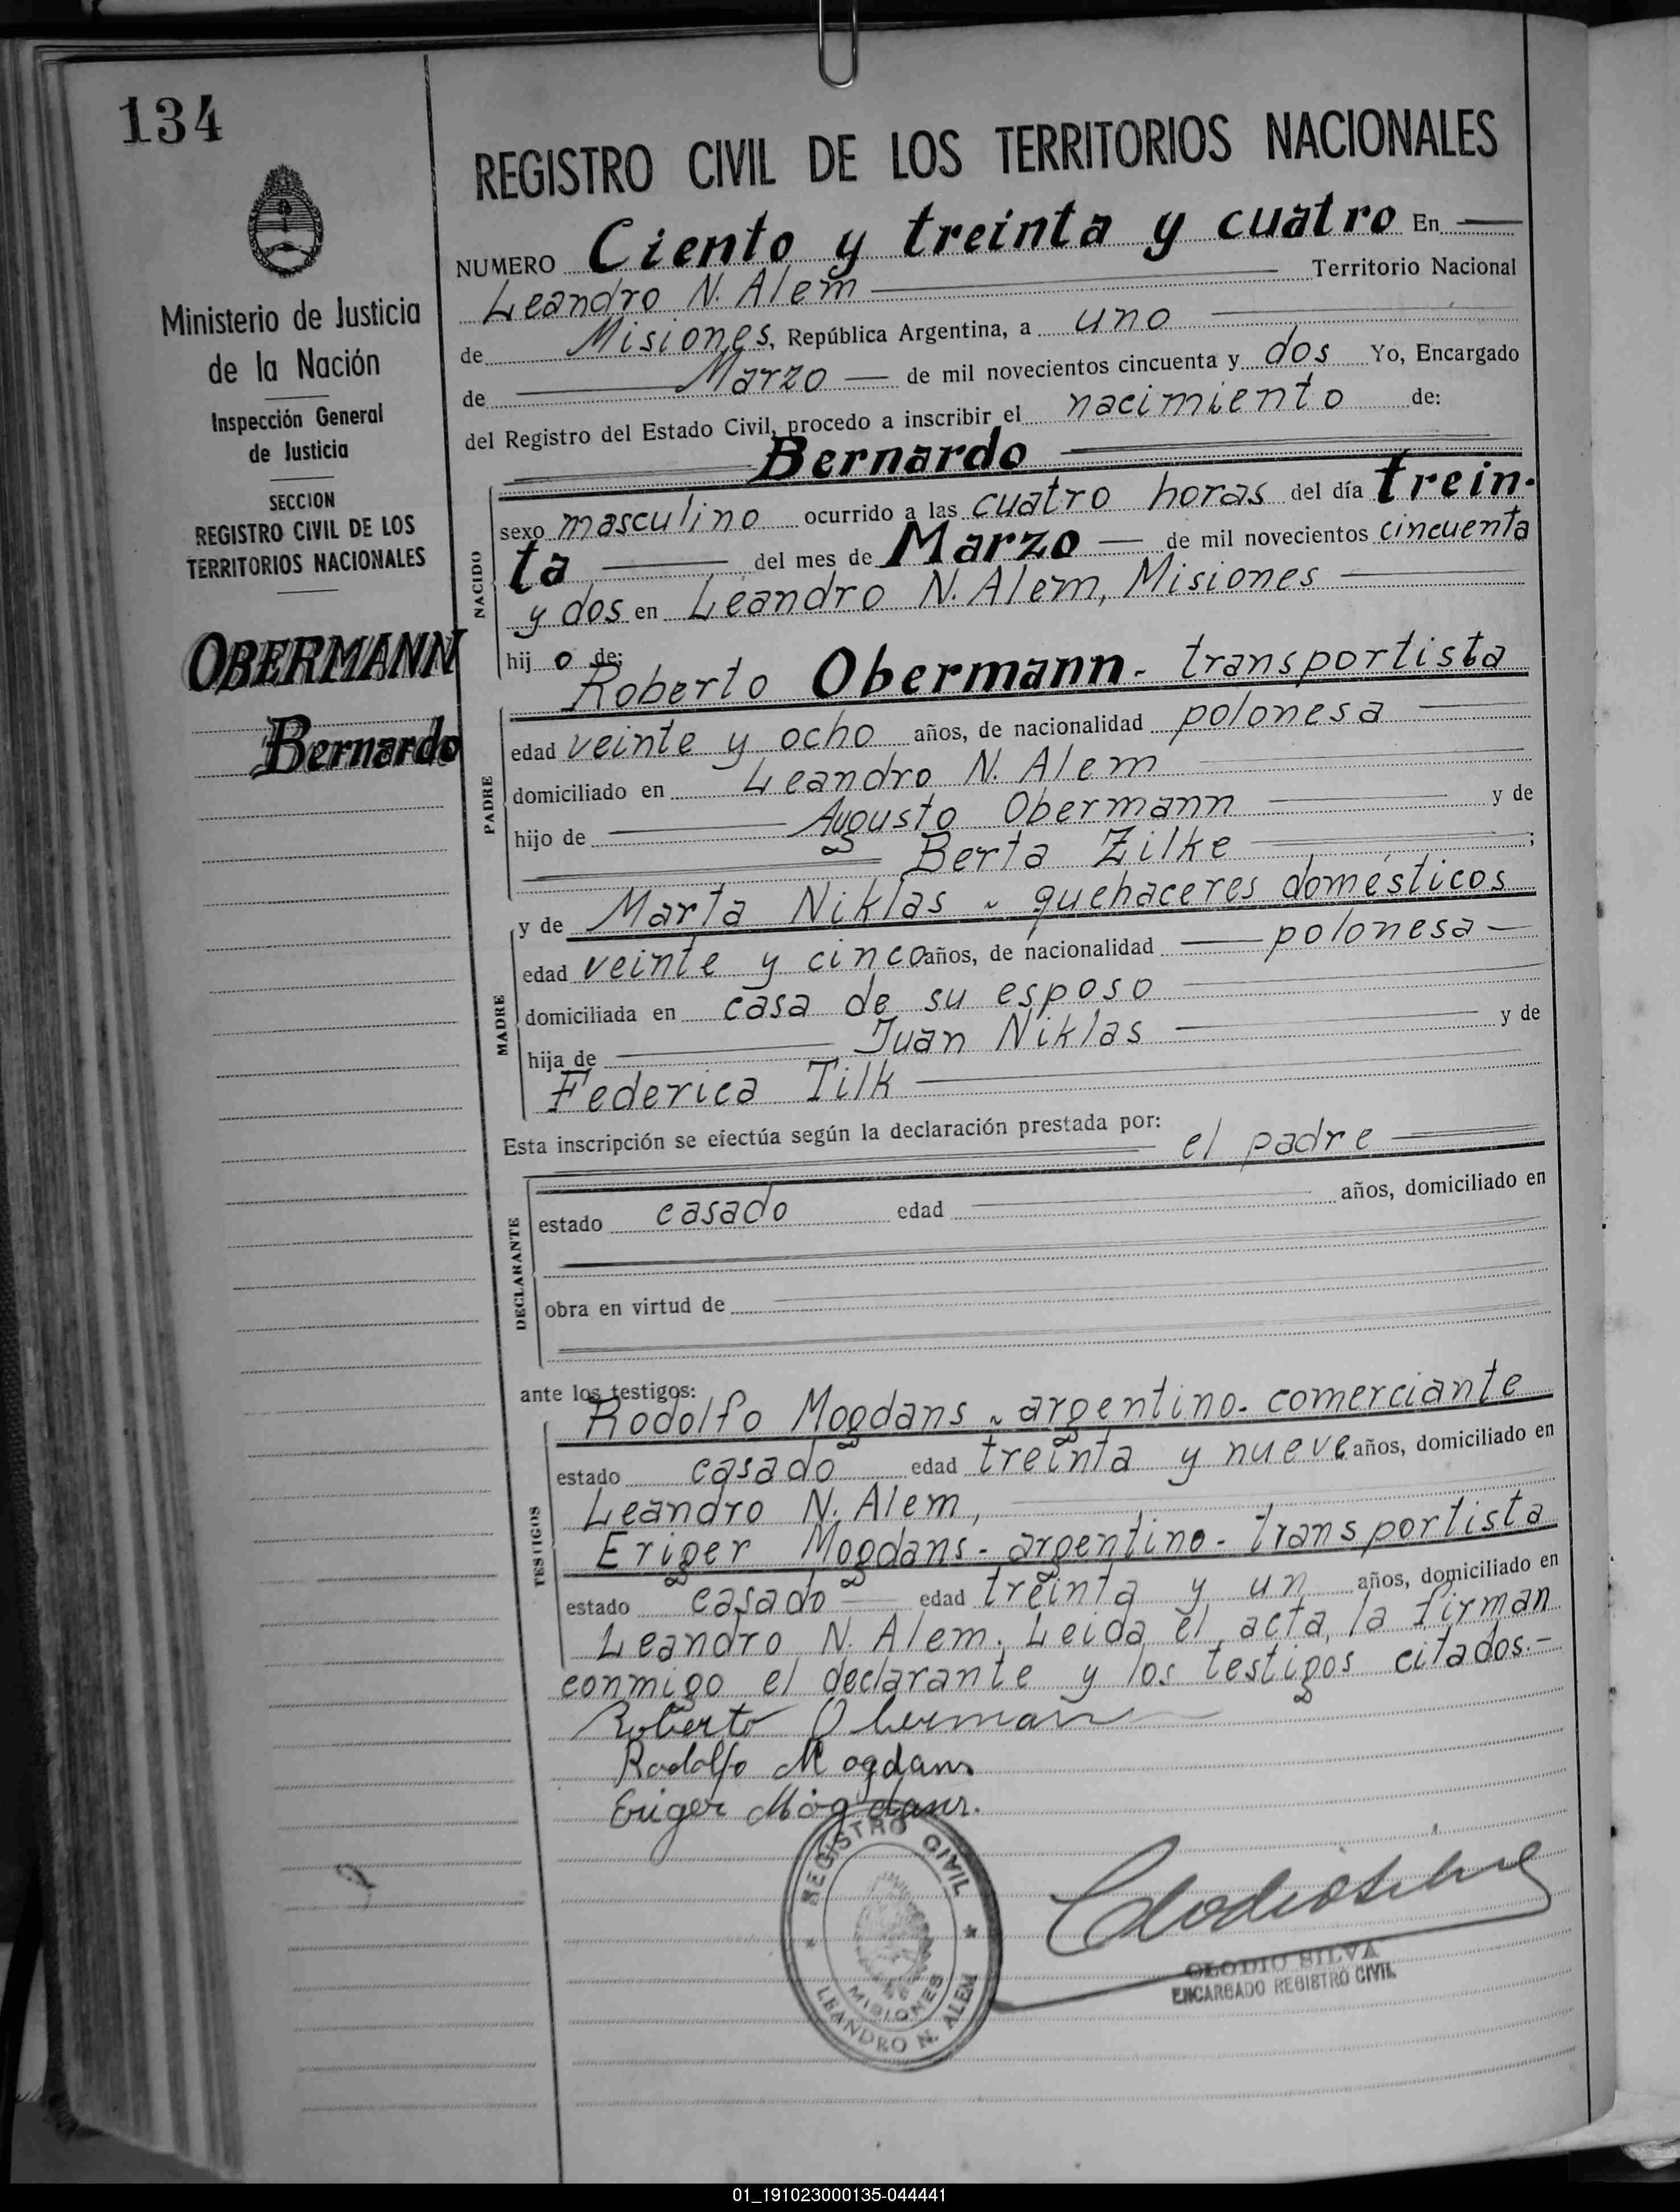 134
Ministerio de Justicia
de la Nación
Inspección General
de Justicia
SECCION
REGISTRO CIVIL DE LOS
TERRITORIOS NACIONALES
OBERMANN
Bernardo
REGISTRO CIVIL DE LOS TERRITORIOS NACIONALES
NUMERO Ciento y treinta y cuatro En
Leandro N. Alem Territorio Nacional
de Misiones, República Argentina, a uno
de Marzo de mil novecientos cincuenta y dos Yo, Encargado
del Registro del Estado Civil, procedo a inscribir el nacimiento de:
Bernardo
NACIDO
sexo masculino ocurrido a las cuatro horas del día trein-
ta del mes de Marzo de mil novecientos cincuenta
y dos en Leandro N. Alem, Misiones
hijo de:
Roberto Obermann - transportista
PADRE
edad veinte y ocho años, de nacionalidad polonesa
domiciliado en Leandro N. Alem
hijo de Augusto Obermann y de
Berta Zilke ;
y de Marta Niklas - quehaceres domésticos
MADRE
edad veinte y cinco años, de nacionalidad polonesa
domiciliada en casa de su esposo
hija de Juan Niklas y de
Federica Tilk
Esta inscripción se efectúa según la declaración prestada por:
el padre
DECLARANTE
estado casado edad años, domiciliado en
obra en virtud de
ante los testigos:
Rodolfo Mogdans - argentino - comerciante
TESTIGOS
estado casado edad treinta y nueve años, domiciliado en
Leandro N. Alem,
Eriger Mogdans - argentino - transportista
estado casado edad treinta y un años, domiciliado en
Leandro N. Alem. Leida el acta, la firman
conmigo el declarante y los testigos citados.-
Roberto Obermann
Rodolfo Mogdans
Eriger Mogdans.
REGISTRO CIVIL
MISIONES
LEANDRO N. ALEM
Clodio Silva
CLODIO SILVA
ENCARGADO REGISTRO CIVIL
01_191023000135-044441